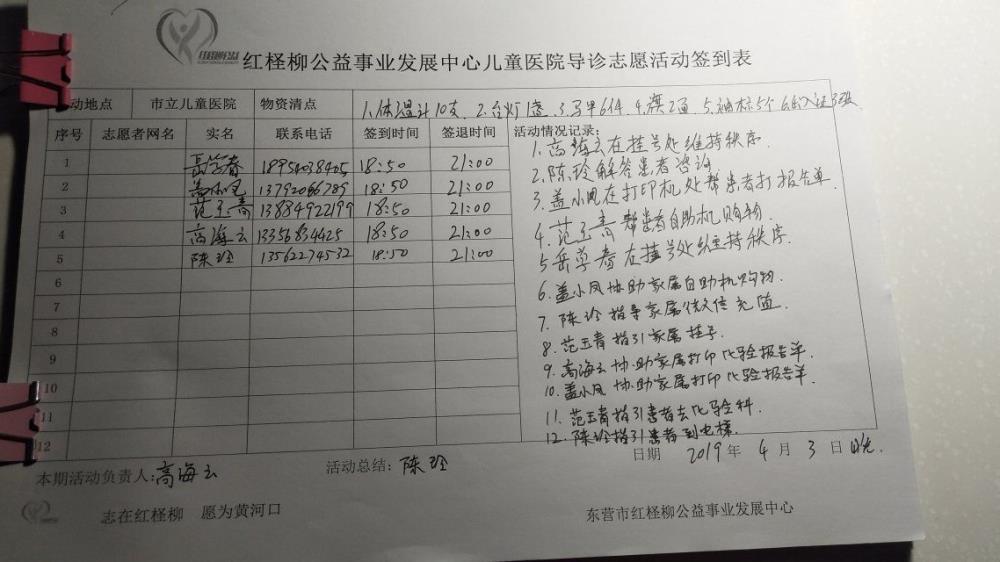 红柽柳公益
红柽柳公益事业发展中心儿童医院导诊志愿活动签到表
动地点 市立儿童医院 物资清点 1、体温计10支、2、台灯1盏、3、马甲6件、4、旗2面、5、袖标5个、6、出入证3张
序号 志愿者网名 实名 联系电话 签到时间 签退时间 活动情况记录:
1 岳学春 18954038405 18:50 21:00
2 盖小凤 13792066789 18:50 21:00
3 范玉青 13884922199 18:50 21:00
4 高海云 13356834425 18:50 21:00
5 陈玲 13562274532 18:50 21:00
6
7
8
9
10
11
12
1、高海云在挂号处维持秩序.
2、陈玲解答患者咨询
3、盖小凤在打印机处帮患者打报告单.
4、范玉青帮患者自助机购物.
5、岳学春在挂号处维持秩序.
6、盖小凤协助家属自助机购物.
7、陈玲指导家属微信充值.
8、范玉青指引家属挂号.
9、高海云协助家属打印化验报告单.
10、盖小凤协助家属打印化验报告单.
11、范玉青指引患者去化验科.
12、陈玲指引患者到电梯.
日期 2019年4月3日晚.
本期活动负责人:高海云 活动总结:陈玲
志在红柽柳 愿为黄河口 东营市红柽柳公益事业发展中心